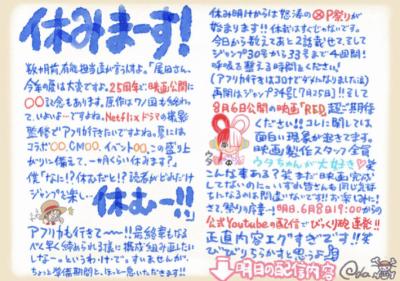 休みまーす!
数ヶ月前、有能担当達が言うんすよ。「尾田さん、
今年の夏は大変ですよ。25周年で映画公開に
〇〇記念もあります。原作はワノ国も終わっ
て、いよいよ…ですよね。Netflixドラマの撮影
監修でアフリカ行きたいですよね。夏には
コラボ〇〇、CM〇〇、イベント〇〇、この盛り上
がりに備えて、一ヶ月くらい休みます?」
僕「なに!?休むだと!?読者がどれだけ
ジャンプを楽し… 休むー!!」
アフリカも行きて〜〜!!最終章もな
るべく早く終われる様に構成組み直したい
しなー。というわけで。すいませんが、
ちょっと準備期間と、ほっと一息いただきます!!
休み明けからは怒涛のⓍP祭りが
始まります!!休載はすぐじゃないです。
今日から数えてあと2話載せて、そして
ジャンプ30号から33号まで4回!
呼吸を整える時間をください!
(アフリカ行きはコロナでダメになりました涙)
再開はジャンプ34号(7月25日)!!そして
8月6日公開の映画「RED」超ご期待
ください!!コレに関しては
面白い現象が起きてます。
映画製作スタッフ全員
ウタちゃんが大好き♡笑
こんな事ある?笑 まだ映画完成
してないのに。いずれ皆さんも同じ気持
ちになるのは間違いないです!!お楽しみに!
さて、祭りの序章→明日、6月8日19:00からの
公式Youtubeの配信でびっくり砲連発!!
正直内容エグすぎです!!笑
びびりちらかすと思うよ
明日の配信内容